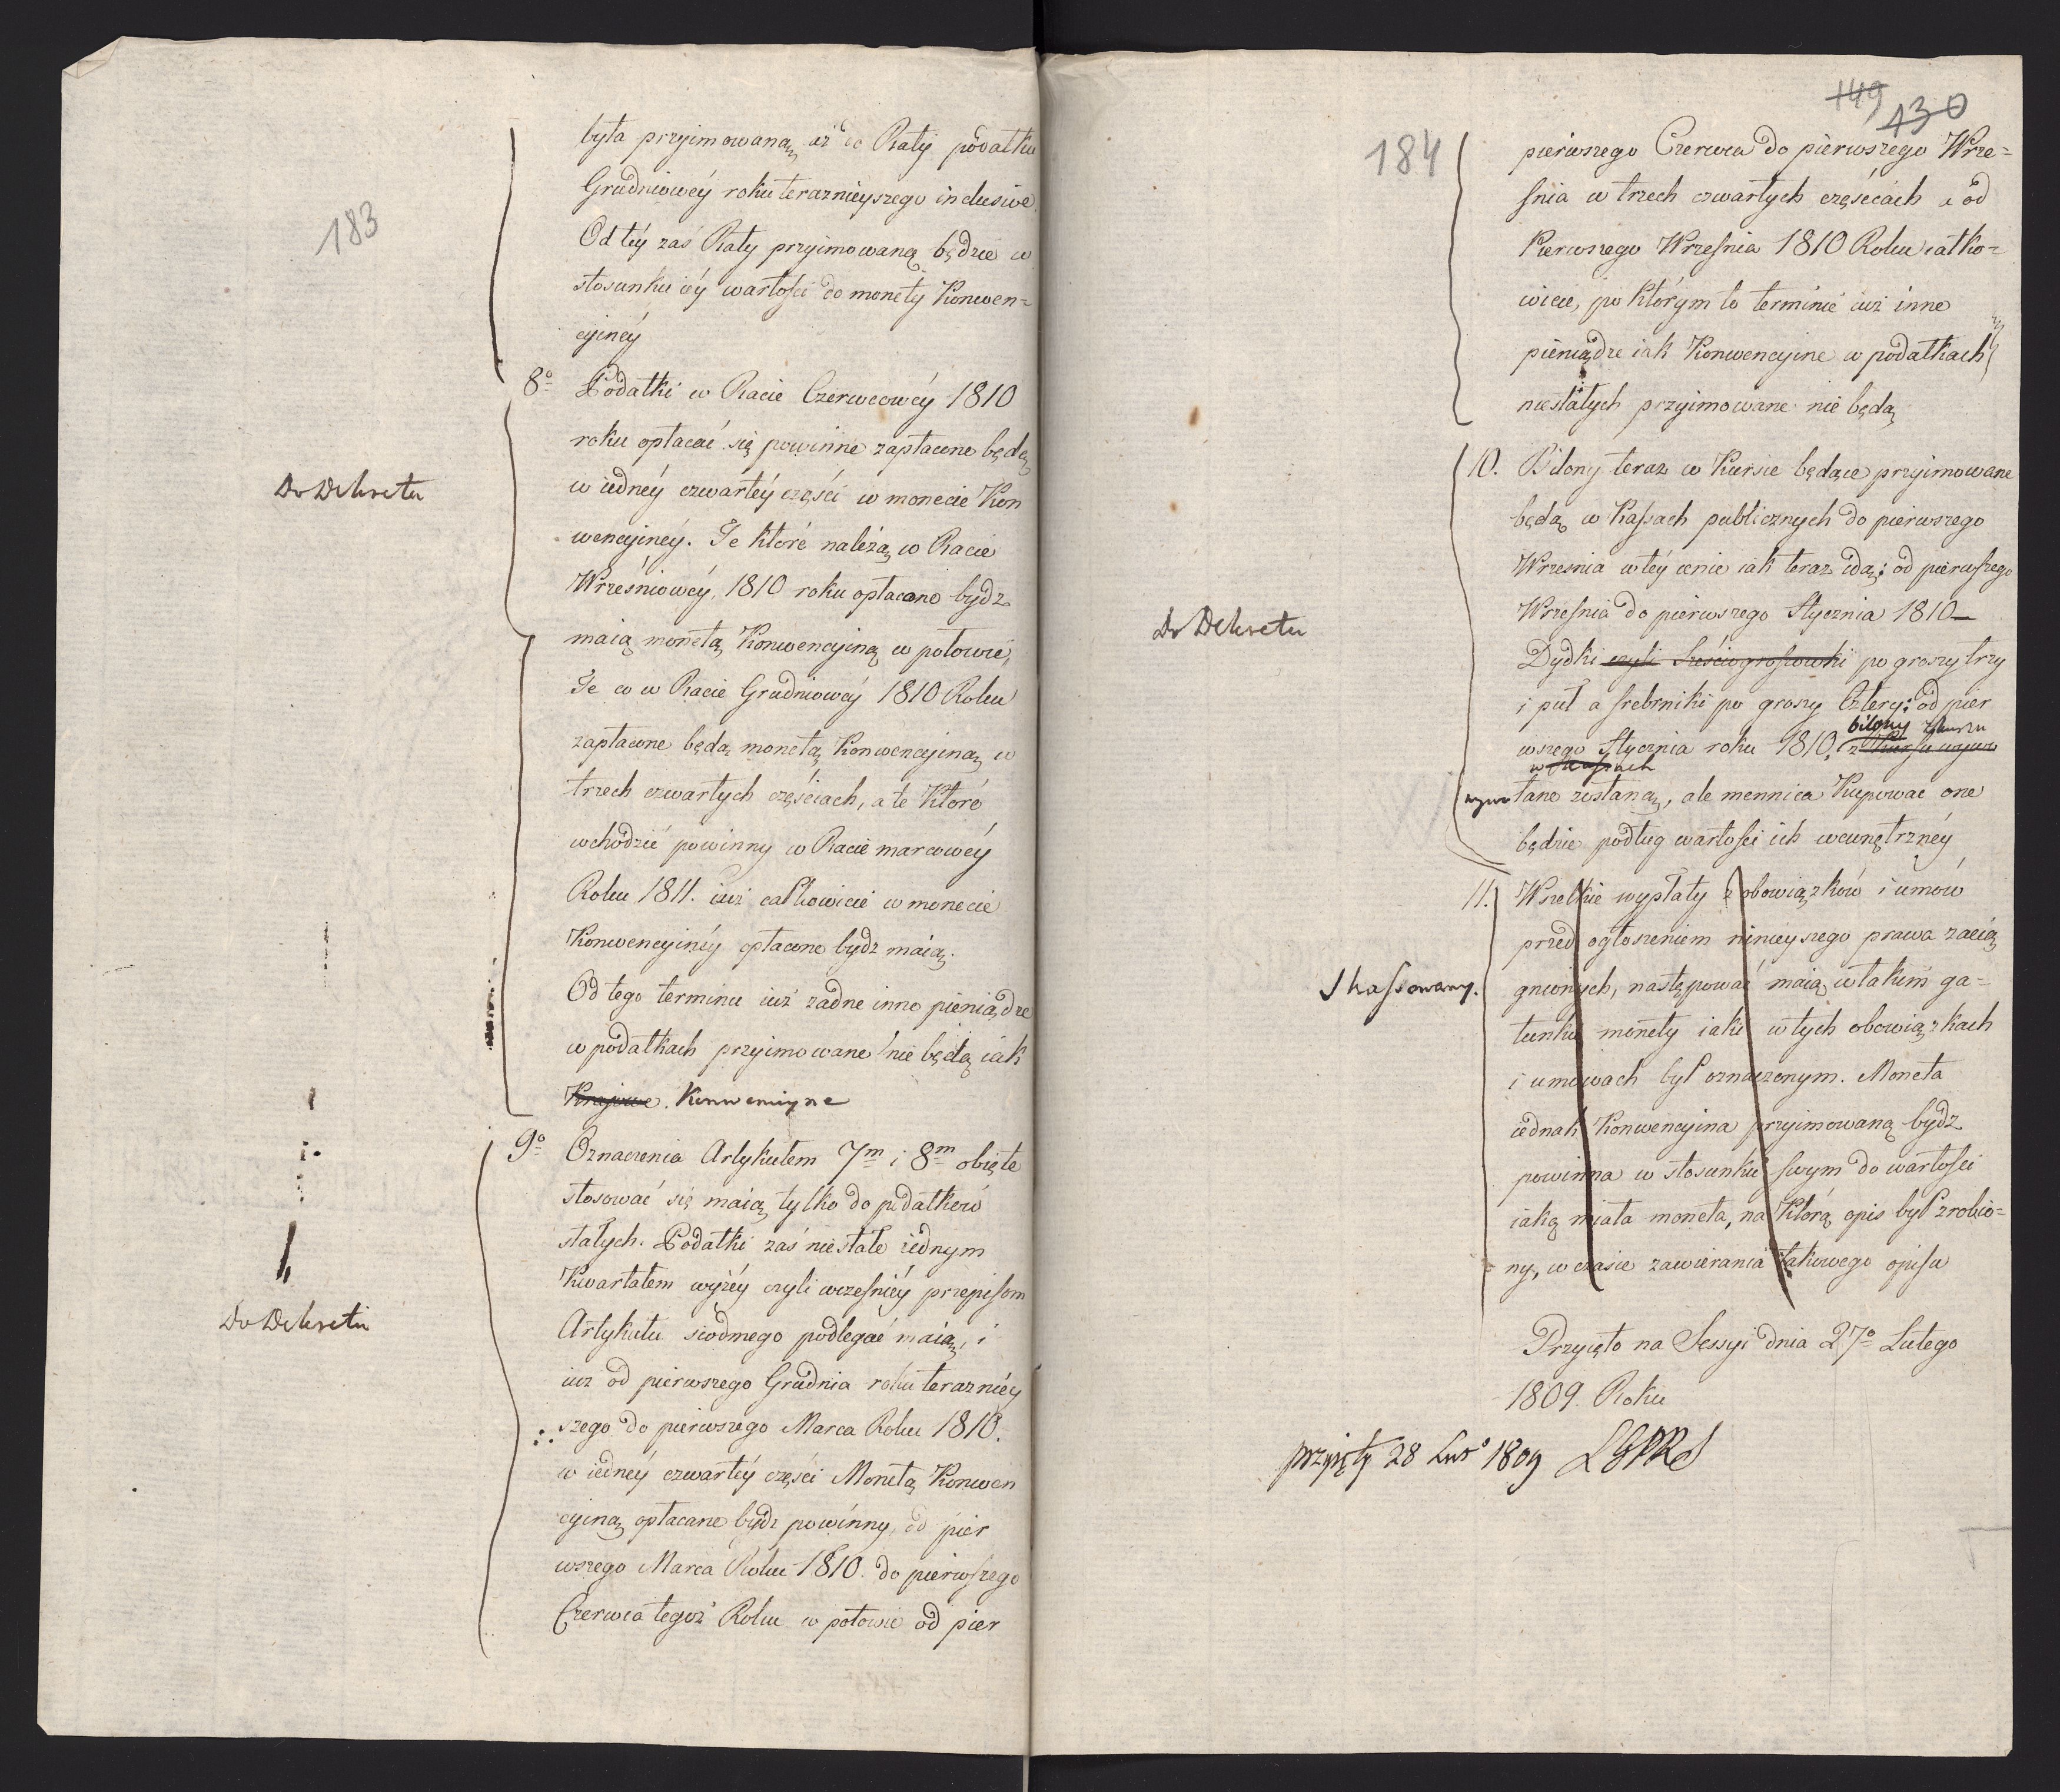 183
była przyimowaną aż do Raty podatku
Grudniowéy roku teraznieyszego inclusive.
Od téy zaś Raty przyimowaną będzie w
stosunku iéy wartości do monety Konwen=
cyinéy
8o Podatki w Racie Czerwcowéy 1810
roku opłacać się powinne zapłacone będą
Do Dekretu
w iednéy czwartéy części w monecie Kon
wencyinéy. Te które należą w Racie
Wrześniowéy, 1810 roku opłacane bydz
maią monetą Konwencyiną w połowie,
Te co w Racie Grudniowéy 1810 Roku
zapłacone będą monetą Konwencyiną w
trzech czwartych częściach, a te które
wchodzić powinny w Racie marcowéy
Roku 1811. iuż całkowicie w monecie
Konwencyinéy opłacone bydz maią.
Od tego terminu iuż żadne inne pieniądze
w podatkach przyimowane nie będą iak
Kraiowe. Konwencyine
9o Oznaczenia Artykułem 7m i 8m obięte
stosować się maią tylko do podatków
stałych. Podatki zaś niestałe iednym
Kwartałem wyżéy czyli wcześniéy przepisom
Do Dekretu
Artykułu siodmego podlegać maią, i
iuż od pierwszego Grudnia roku terazniéy
szego do pierwszego Marca Roku 1810.
w iednéy czwartéy części Monetą Konwen
cyiną opłacane bydz powinny, od pier
wszego Marca Roku 1810. do pierwszego
Czerwca tegoż Roku w połowie od pier
149 130
184
pierwszego Czerwca do pierwszego Wrze=
śnia w trzech czwartych częściach a od
Pierwszego Września 1810 Roku całko=
wicie, po którym to terminie iuż inne
pieniądze iak Konwencyine w podatkach
niestałych przyimowane nie będą
10. Bilony teraz w Kursie będące przyimowane
będą w Kassach publicznych do pierwszego
Września w téy cenie iak teraz idą: od pierwszego
Do Dekretu
Września do pierwszego Stycznia 1810 —
Dydki czyli Sześciogroszowki po groszy trzy
i puł a srebrniki po groszy Cztery: od pier
bilony z kursu
wszego Stycznia roku 1810, z Kursu wywo
w Kassach
wywołane zostaną, ale mennica Kupować one
będzie podług wartości ich wewnętrznéy
11. Wszelkie wypłaty z obowiązków i umów
przed ogłoszeniem ninieyszego prawa zacią
Skassowany.
gnionych, następować maią w takim ga=
tunku monety iaki w tych obowiązkach
i umowach był oznaczonym. Moneta
iednak Konwencyina przyimowaną bydz
powinna w stosunku swym do wartości
iaką miała moneta, na którą opis był zrobio=
ny, w czasie zawierania takowego opisu
Przyięto na Sessyi dnia 27o Lutego
1809. Roku
przyięty 28 Luto 1809